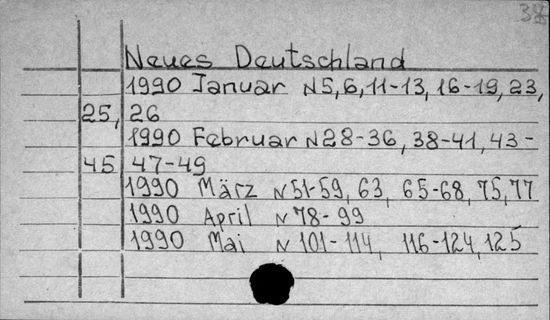 38
Neues Deutschland
1990 Januar N5,6,11-13, 16-19, 23,
25, 26
1990 Februar N28-36, 38-41, 43-
45 47-49
1990 März N51-59, 63, 65-68, 75, 77
1990 April N78-99
1990 Mai N101-114, 116-124, 125